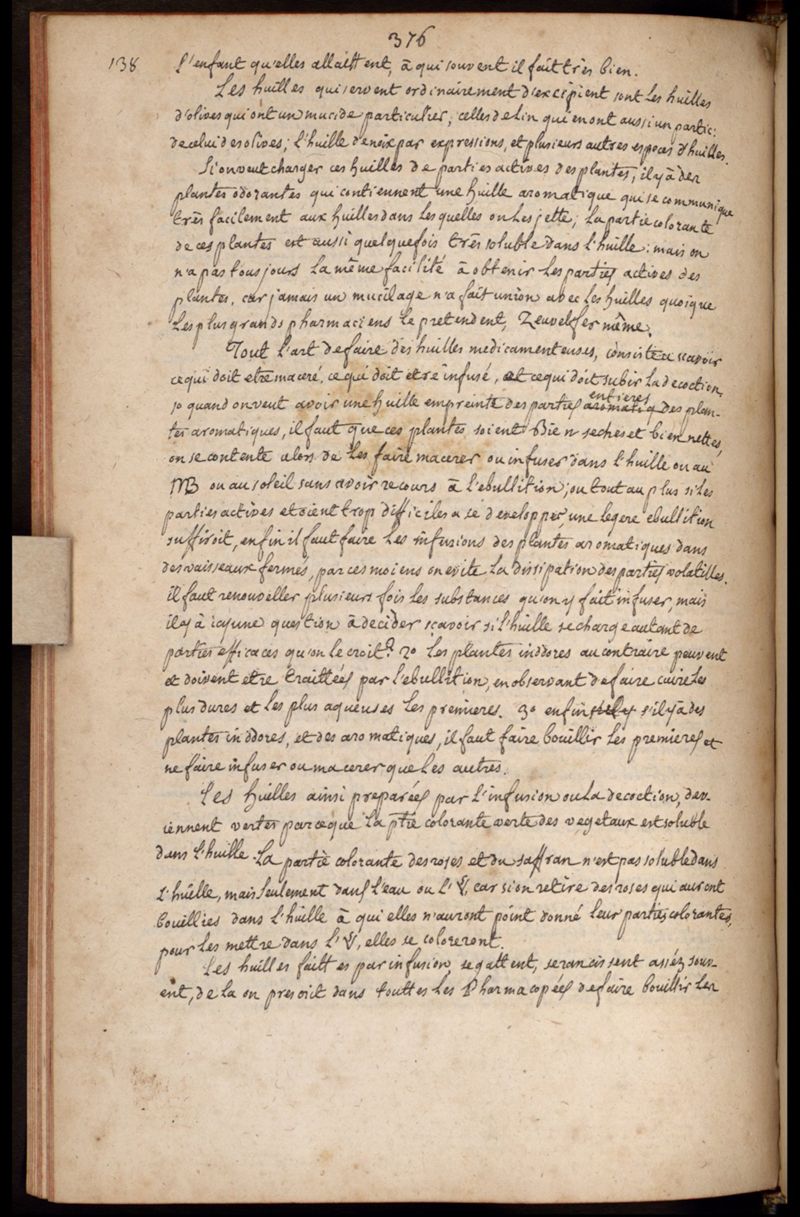 376
138 l'enfant qu'elles allaittent, à qui souvent il fait très bien.
Les huilles qui servent ordinairement d'excipient sont les huilles
d'olives qui ont un mucide particulier; celles de lin qui en ont aussi un partic:
de celui des olives; l'huille d'enix par expressions, et plusieurs autres especes d'huilles.
Si on veut charger ces huilles de parties actives des plantes, il y à des
plantes odorantes qui contiennent une huille aromatique qui se communique
très facilement aux huilles dans lesquelles on les jette; la partie colorante
de ces plantes est aussi quelquefois très soluble dans l'huille: mais on
n'a pas tousjours la même facilité à obtenir les parties actives des
plantes, car jamais un mucilage n'a fait union avec les huilles quoique
les plus grands pharmaciens le pretendent, Zeuvelfer même.
Tout l'art de faire des huilles medicamenteuses, consiste a scavoir
ce qui doit etre maceré, ce qui doit etre infusé, et ce qui doit subir la decoction,
1o quand on veut avoir une huille empreinte des parties entieres des plan-
tes aromatiques, il faut que ces plantes soient Bien seches et bien nettes,
on se contente alors de les faire macerer ou infuser dans l'huille ou au
MB ou au soleil sans avoir recours à l'ebullition; ou tout au plus si les
parties actives etoient trop difficiles a se developper une legere ebullition
suffiroit, enfin il faut faire les infusions des plantes aromatiques dans
des vaisseaux fermés, par ces moiens on evite la dissipation des parties volatilles.
il faut renouveller plusieurs fois les substances qu'on y fait infuser, mais
il y à icy une question à decider scavoir si l'huille se charge autant de
parties efficaces qu'on le croit? 2o les plantes inodores au contraire peuvent
et doivent etre traittées par l'ebullition, en observant de faire cuire les
plus dures et les plus aqueuses les premieres. 3o enfin s'il y a des
plantes inodores, et des aromatiques, il faut faire bouillir les premieres et
ne faire infuser ou macerer que les autres.
Les huilles ainsi preparées par l'infusion ou la decoction, dev-
iennent vertes parceque la ptie colorante verte des vegetaux est soluble
dans l'huille. La partie colorante des roses et du saffran n'est pas soluble dans
l'huille, mais seulement dans l'eau ou l' car si on retire des roses qui auront
bouillies dans l'huille à qui elles n'auront point donné leur parties colorantes,
pour les mettre dans l' , elles se coloreront.
Les huilles faittes par infusion se gattent, se rancissent assez souv-
ent, de la on prescrit dans touttes les Pharmacopées de faire bouillir les